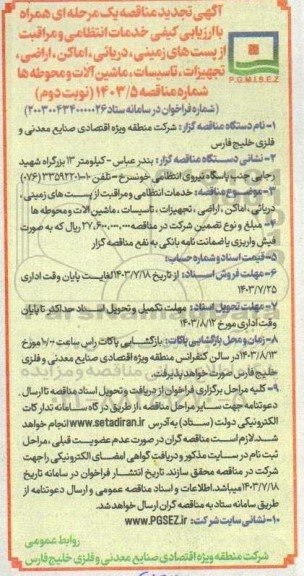 آگهی تجدید مناقصه یک مرحله ای همراه
با ارزیابی کیفی خدمات انتظامی و مراقبت
از پست های زمینی، دریائی، اماکن، اراضی،
تجهیزات، تاسیسات، ماشین آلات و محوطه ها
شماره مناقصه ۱۴۰۳/۵ (نوبت دوم)
P.G.M.I.S.E.Z
(شماره فراخوان در سامانه ستاد ۲۰۰۳۰۰۴۳۴۰۰۰۰۰۲۶)
۱- نام دستگاه مناقصه گزار: شرکت منطقه ویژه اقتصادی صنایع معدنی و
فلزی خلیج فارس
۲- نشانی دستگاه مناقصه گزار: بندرعباس - کیلومتر ۱۳ بزرگراه شهید
رجایی جنب پاسگاه نیروی انتظامی خونسرخ - تلفن ۱۰-۳۳۵۹۲۲۰۱ (۰۷۶)
۳- موضوع مناقصه: خدمات انتظامی و مراقبت از پست های زمینی،
دریائی، اماکن، اراضی، تجهیزات، تاسیسات، ماشین آلات و محوطه ها
۴- مبلغ و نوع تضمین شرکت در مناقصه: ۲۷,۶۰۰,۰۰۰,۰۰۰ ریال که به صورت
فیش واریزی یا ضمانت نامه بانکی به نفع مناقصه گزار
۵- قیمت اسناد و شماره حساب:
۶- مهلت فروش اسناد: از تاریخ ۱۴۰۳/۷/۱۸ لغایت پایان وقت اداری
۱۴۰۳/۷/۲۵
۷- مهلت تحویل اسناد: مهلت تکمیل و تحویل اسناد حداکثر تا پایان
وقت اداری مورخ ۱۴۰۳/۸/۱۲
۸- زمان و محل بازگشایی پاکات: بازگشایی پاکات راس ساعت ۱۰/۰۰ مورخ
۱۴۰۳/۸/۱۳ در سالن کنفرانس منطقه ویژه اقتصادی صنایع معدنی و فلزی
خلیج فارس صورت خواهد پذیرفت.
۹- کلیه مراحل برگزاری فراخوان از دریافت و تحویل اسناد مناقصه تا ارسال
دعوتنامه جهت سایر مراحل مناقصه، از طریق درگاه سامانه تدارکات
الکترونیکی دولت (ستاد) به آدرس www.setadiran.ir انجام خواهد
شد. لازم است مناقصه گران در صورت عدم عضویت قبلی، مراحل
ثبت نام در سایت مذکور و دریافت گواهی امضای الکترونیکی را جهت
شرکت در مناقصه محقق سازند. تاریخ انتشار فراخوان در سامانه تاریخ
۱۴۰۳/۷/۱۸ میباشد. اطلاعات و اسناد مناقصه عمومی و ارسال دعوتنامه از
طریق سامانه ستاد به مناقصه گران ارسال خواهد شد.
۱۰- نشانی سایت شرکت: www.PGSEZ.ir
روابط عمومی
شرکت منطقه ویژه اقتصادی صنایع معدنی و فلزی خلیج فارس